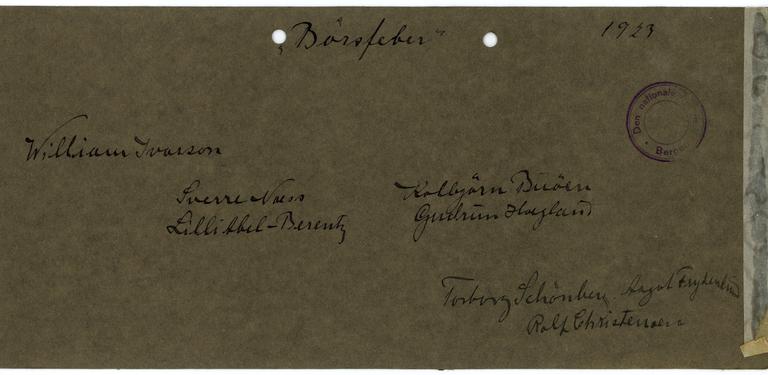 „Börsfeber"
1923
Den nationale Bergen
William Ivarson
Sverre Næss
Lillibbel-Berentz
Kolbjörn Buöen
Gudrun Hoegland
Torborg Schönberg. Aagot Frydenlund
Rolf Christensen